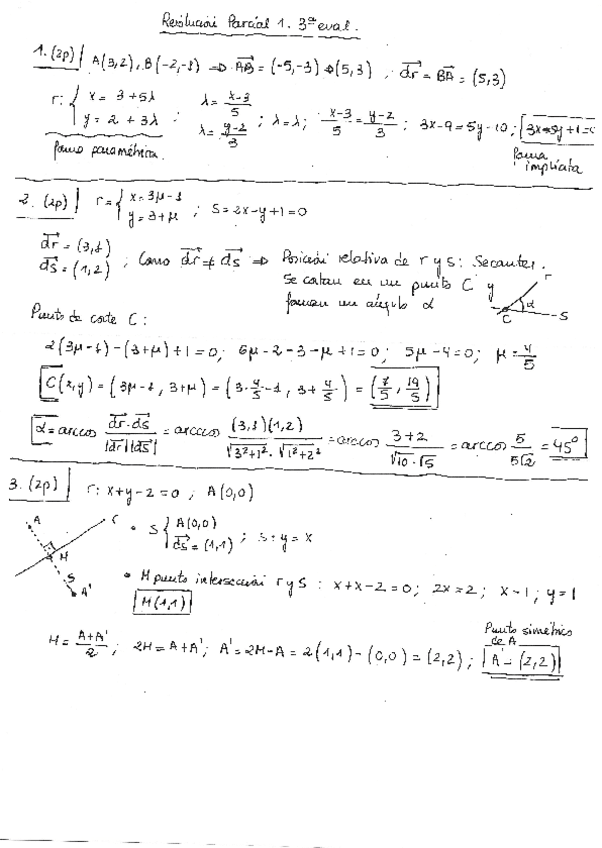 Resolución Parcial 1. 3ª eval.
1. (2p) A(3,2), B(-2,-1) ⇒ AB = (-5,-3) ⇒ (5,3), dr = BA = (5,3)
r: { x = 3 + 5λ ; λ = x-3/5 ; λ = λ ; x-3/5 = y-2/3 ; 3x-9 = 5y-10 ; 3x-5y+1=0
y = 2 + 3λ λ = y-2/3
forma paramétrica. forma implícita
2. (2p) r = { x = 3μ-1 ; s = 2x-y+1=0
y = 3+μ
dr = (3,1)
ds = (1,2) ; Como dr ≠ ds ⇒ Posición relativa de r y s: Secantes.
Se cortan en un punto C y
forman un ángulo α
r
α
C
s
Punto de corte C:
2(3μ-1)-(3+μ)+1=0; 6μ-2-3-μ+1=0; 5μ-4=0; μ=4/5
C(x,y) = (3μ-1, 3+μ) = (3·4/5-1, 3+4/5) = (7/5, 19/5)
α = arccos dr·ds/|dr||ds| = arccos (3,1)(1,2)/√3²+1²·√1²+2² = arccos 3+2/√10·√5 = arccos 5/5√2 = 45º
3. (2p) r: x+y-2=0, A(0,0)
A
r
M
s
A'
• s { A(0,0) ; s: y = x
ds = (1,1)
• M punto intersección r y s : x+x-2=0; 2x=2; x=1; y=1
M(1,1)
M = A+A'/2 ; 2M = A+A'; A' = 2M-A = 2(1,1)-(0,0) = (2,2) ; A' = (2,2)
Punto simétrico
de A